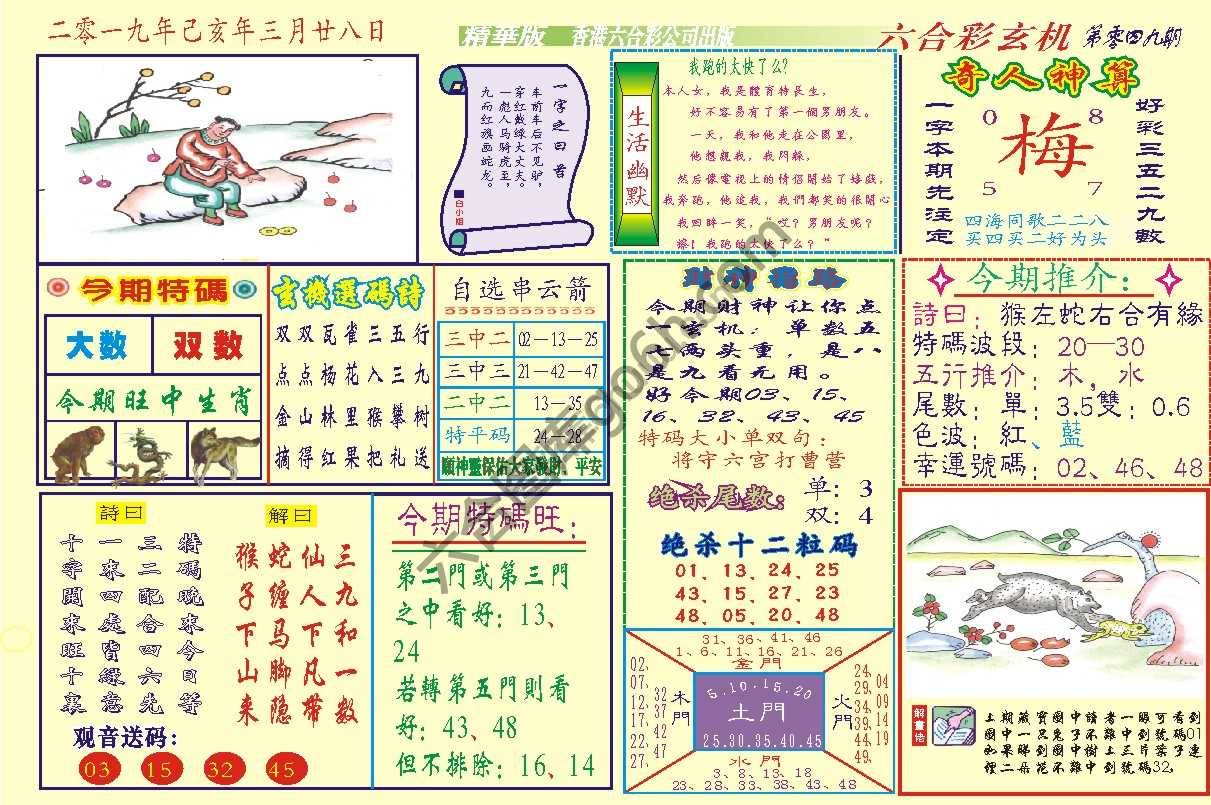 二零一九年己亥年三月廿八日
精華版 香港六合彩公司出版
六合彩玄机 第零四九期
一字之曰:
车前车后不见驴,
穿红戴绿大丈夫。
一彪人马骑虎至,
九面红旗画蛇龙。
白小姐
生活幽默
我跑的太快了么?
本人女,我是體育特長生,
好不容易有了第一個男朋友。
一天,我和他走在公園里,
他想親我,我閃躲,
然后像電視上的情侶開始了嬉戲,
我奔跑,他追我,我們都笑的很開心
我回眸一笑,“哎?男朋友呢?
擦!我跑的太快了么?”
奇人神算
一字本期先注定
好彩三五二九數
0 8
梅
5 7
四海同歌二二八
买四买二好为头
今期特碼
大数 双数
今期旺中生肖
玄機選碼詩
双双瓦雀三五行
点点杨花入三九
金山林里猴攀树
摘得红果把礼送
自选串云箭
三中二 02—13—25
三中三 21—42—47
二中二 13—35
特平码 24—28
願神靈保佑大家發財、平安
財神
今期财神让你点
一玄机:单数五
七两头重,是八
是九看无用。
好今期03、15、
16、32、43、45
特码大小单双句:
将守六宫打曹营
绝杀尾数: 单:3
双:4
绝杀十二粒码
01、13、24、25
43、15、27、23
48、05、20、48
今期推介:
詩曰:猴左蛇右合有緣
特碼波段:20—30
五行推介:木,水
尾數:單:3.5雙:0.6
色波:紅、藍
幸運號碼:02、46、48
詩曰
十字開來旺十裏
一來四處皆緣意
三二配合四六先
特碼晚來今日等
解曰
猴子下山来
蛇缠马脚隐
仙人下凡带
三九和一数
观音送码:
03 15 32 45
今期特碼旺:
第二門或第三門
之中看好:13、
24
若轉第五門則看
好:43、48
但不排除:16、14
31、36、41、46
1、6、11、16、21、26
金門
02、07、12、17、22、27、
32、37、42、47
木門
5.10.15.20
土門
25.30.35.40.45
火門
24、29、34、39、44、49、
04、09、14、19
水門
3、8、13、18
23、28、33、38、43、48
解畫悟
上期藏寶圖中讀者一眼可看到
圖中一只兔子不難中到號碼01
如果睇到圖中樹上三片葉子連
裡二朵花不難中到號碼32,
六合图库go6h.com